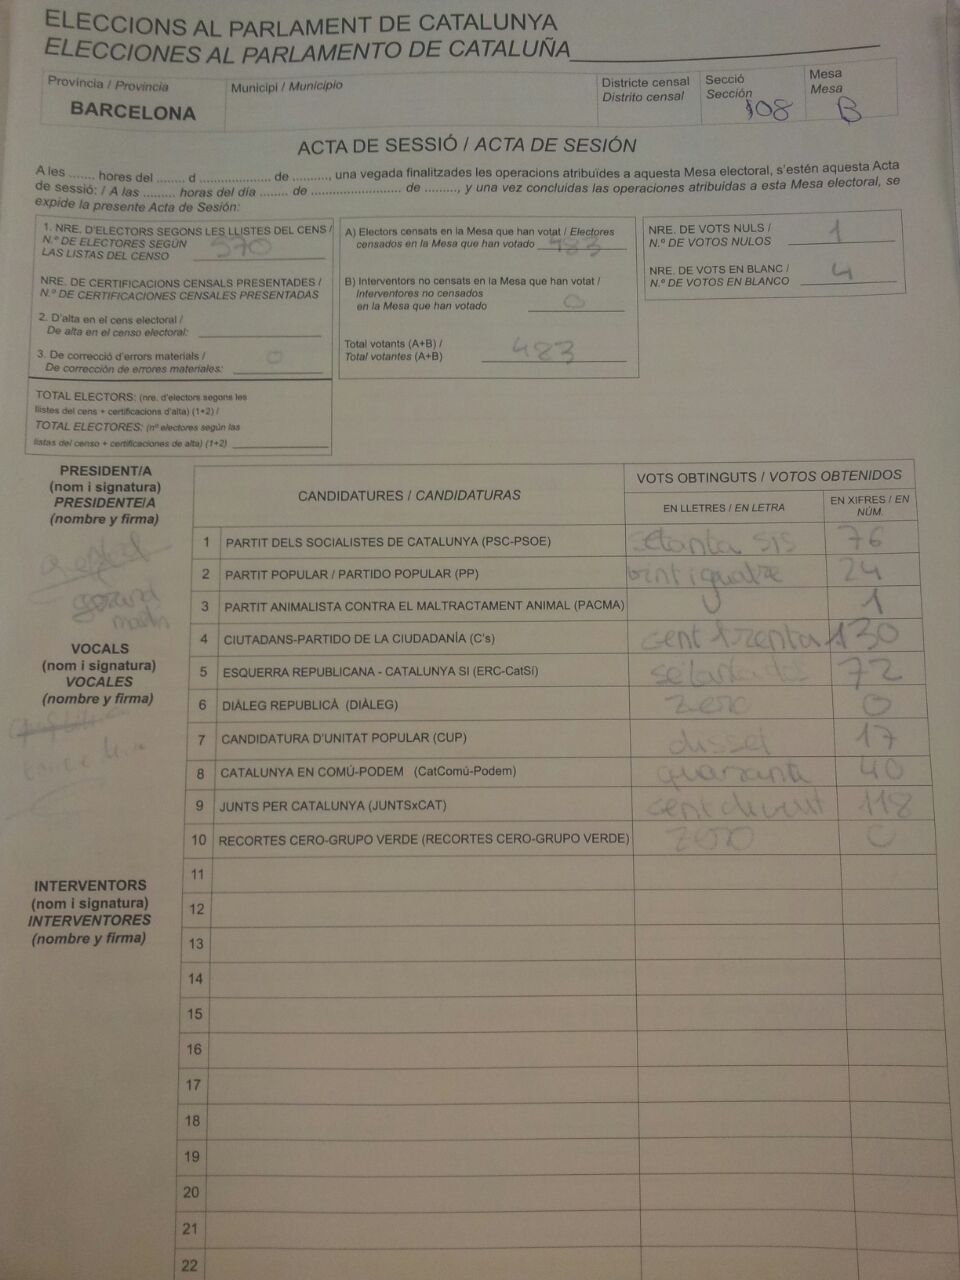 ELECCIONS AL PARLAMENT DE CATALUNYA
ELECCIONES AL PARLAMENTO DE CATALUÑA
Província / Provincia
BARCELONA
Municipi / Municipio
Districte censal
Distrito censal
Secció
Sección
108
Mesa
Mesa
B
ACTA DE SESSIÓ / ACTA DE SESIÓN
A les ....... hores del ........ d .................... de .........., una vegada finalitzades les operacions atribuïdes a aquesta Mesa electoral, s'estén aquesta Acta
de sessió: / A las ......... horas del día ........ de ......................... de ........., y una vez concluidas las operaciones atribuidas a esta Mesa electoral, se
expide la presente Acta de Sesión:
1. NRE. D'ELECTORS SEGONS LES LLISTES DEL CENS /
N.º DE ELECTORES SEGÚN
LAS LISTAS DEL CENSO 570
NRE. DE CERTIFICACIONS CENSALS PRESENTADES /
N.º DE CERTIFICACIONES CENSALES PRESENTADAS
2. D'alta en el cens electoral /
De alta en el censo electoral:
3. De correcció d'errors materials /
De corrección de errores materiales: 0
TOTAL ELECTORS: (nre. d'electors segons les
llistes del cens + certificacions d'alta) (1+2) /
TOTAL ELECTORES: (nº electores según las
listas del censo + certificaciones de alta) (1+2)
A) Electors censats en la Mesa que han votat / Electores
censados en la Mesa que han votado 483
B) Interventors no censats en la Mesa que han votat /
Interventores no censados
en la Mesa que han votado 0
Total votants (A+B) /
Total votantes (A+B) 483
NRE. DE VOTS NULS /
N.º DE VOTOS NULOS 1
NRE. DE VOTS EN BLANC /
N.º DE VOTOS EN BLANCO 4
PRESIDENT/A
(nom i signatura)
PRESIDENTE/A
(nombre y firma)
VOCALS
(nom i signatura)
VOCALES
(nombre y firma)
INTERVENTORS
(nom i signatura)
INTERVENTORES
(nombre y firma)
CANDIDATURES / CANDIDATURAS
VOTS OBTINGUTS / VOTOS OBTENIDOS
EN LLETRES / EN LETRA
EN XIFRES / EN
NÚM.
1 PARTIT DELS SOCIALISTES DE CATALUNYA (PSC-PSOE) setanta sis 76
2 PARTIT POPULAR / PARTIDO POPULAR (PP) vint i quatre 24
3 PARTIT ANIMALISTA CONTRA EL MALTRACTAMENT ANIMAL (PACMA) U 1
4 CIUTADANS-PARTIDO DE LA CIUDADANÍA (C's) cent trenta 130
5 ESQUERRA REPUBLICANA - CATALUNYA SI (ERC-CatSí) setanta dos 72
6 DIÀLEG REPUBLICÀ (DIÀLEG) zero 0
7 CANDIDATURA D'UNITAT POPULAR (CUP) disset 17
8 CATALUNYA EN COMÚ-PODEM (CatComú-Podem) quaranta 40
9 JUNTS PER CATALUNYA (JUNTSxCAT) cent divuit 118
10 RECORTES CERO-GRUPO VERDE (RECORTES CERO-GRUPO VERDE) zero 0
11
12
13
14
15
16
17
18
19
20
21
22